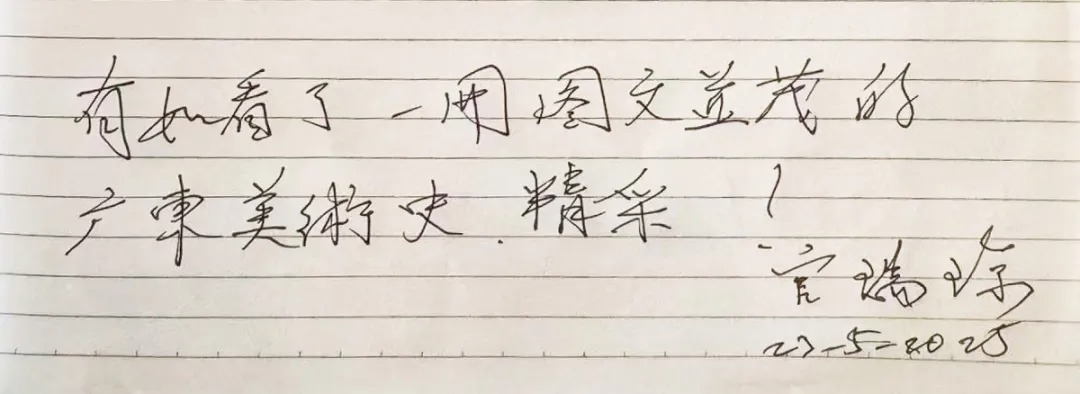 有如看了一册图文並茂的
广東美術史.精采!
官瑞
27-5-2025